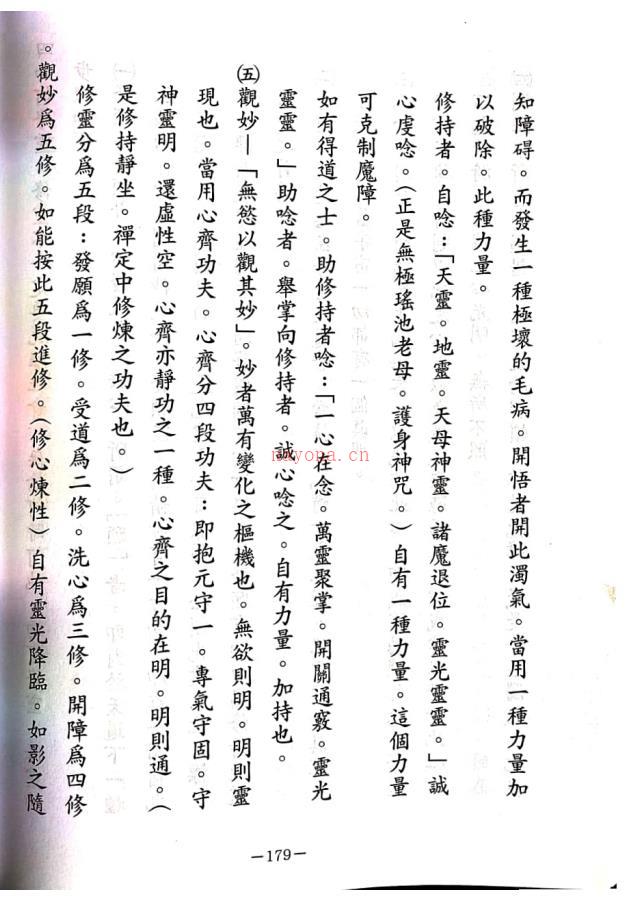 知障碍。而發生一種極壞的毛病。開悟者開此濁氣。當用一種力量加
以破除。此種力量。
修持者。自唸:「天靈。地靈。天母神靈。諸魔退位。靈光靈靈。」誠
心虔唸。(正是無極瑤池老母。護身神咒。)自有一種力量。這個力量
可克制魔障。
如有得道之士。助修持者唸:「一心在念。萬靈聚掌。開關通竅。靈光
靈靈。」助唸者。舉掌向修持者。誠心唸之。自有力量。加持也。
㈤觀妙—「無慾以觀其妙」。妙者萬有變化之樞機也。無欲則明。明則靈
現也。當用心齊功夫。心齊分四段功夫:即抱元守一。專氣守固。守
神靈明。還虛性空。心齊亦靜功之一種。心齊之目的在明。明則通。(
是修持靜坐。禪定中修煉之功夫也。)
修靈分爲五段:發愿爲一修。受道爲二修。洗心爲三修。開障爲四修
。觀妙爲五修。如能按此五段進修。(修心煉性)自有靈光降臨。如影之隨
—179—
nayona.cn